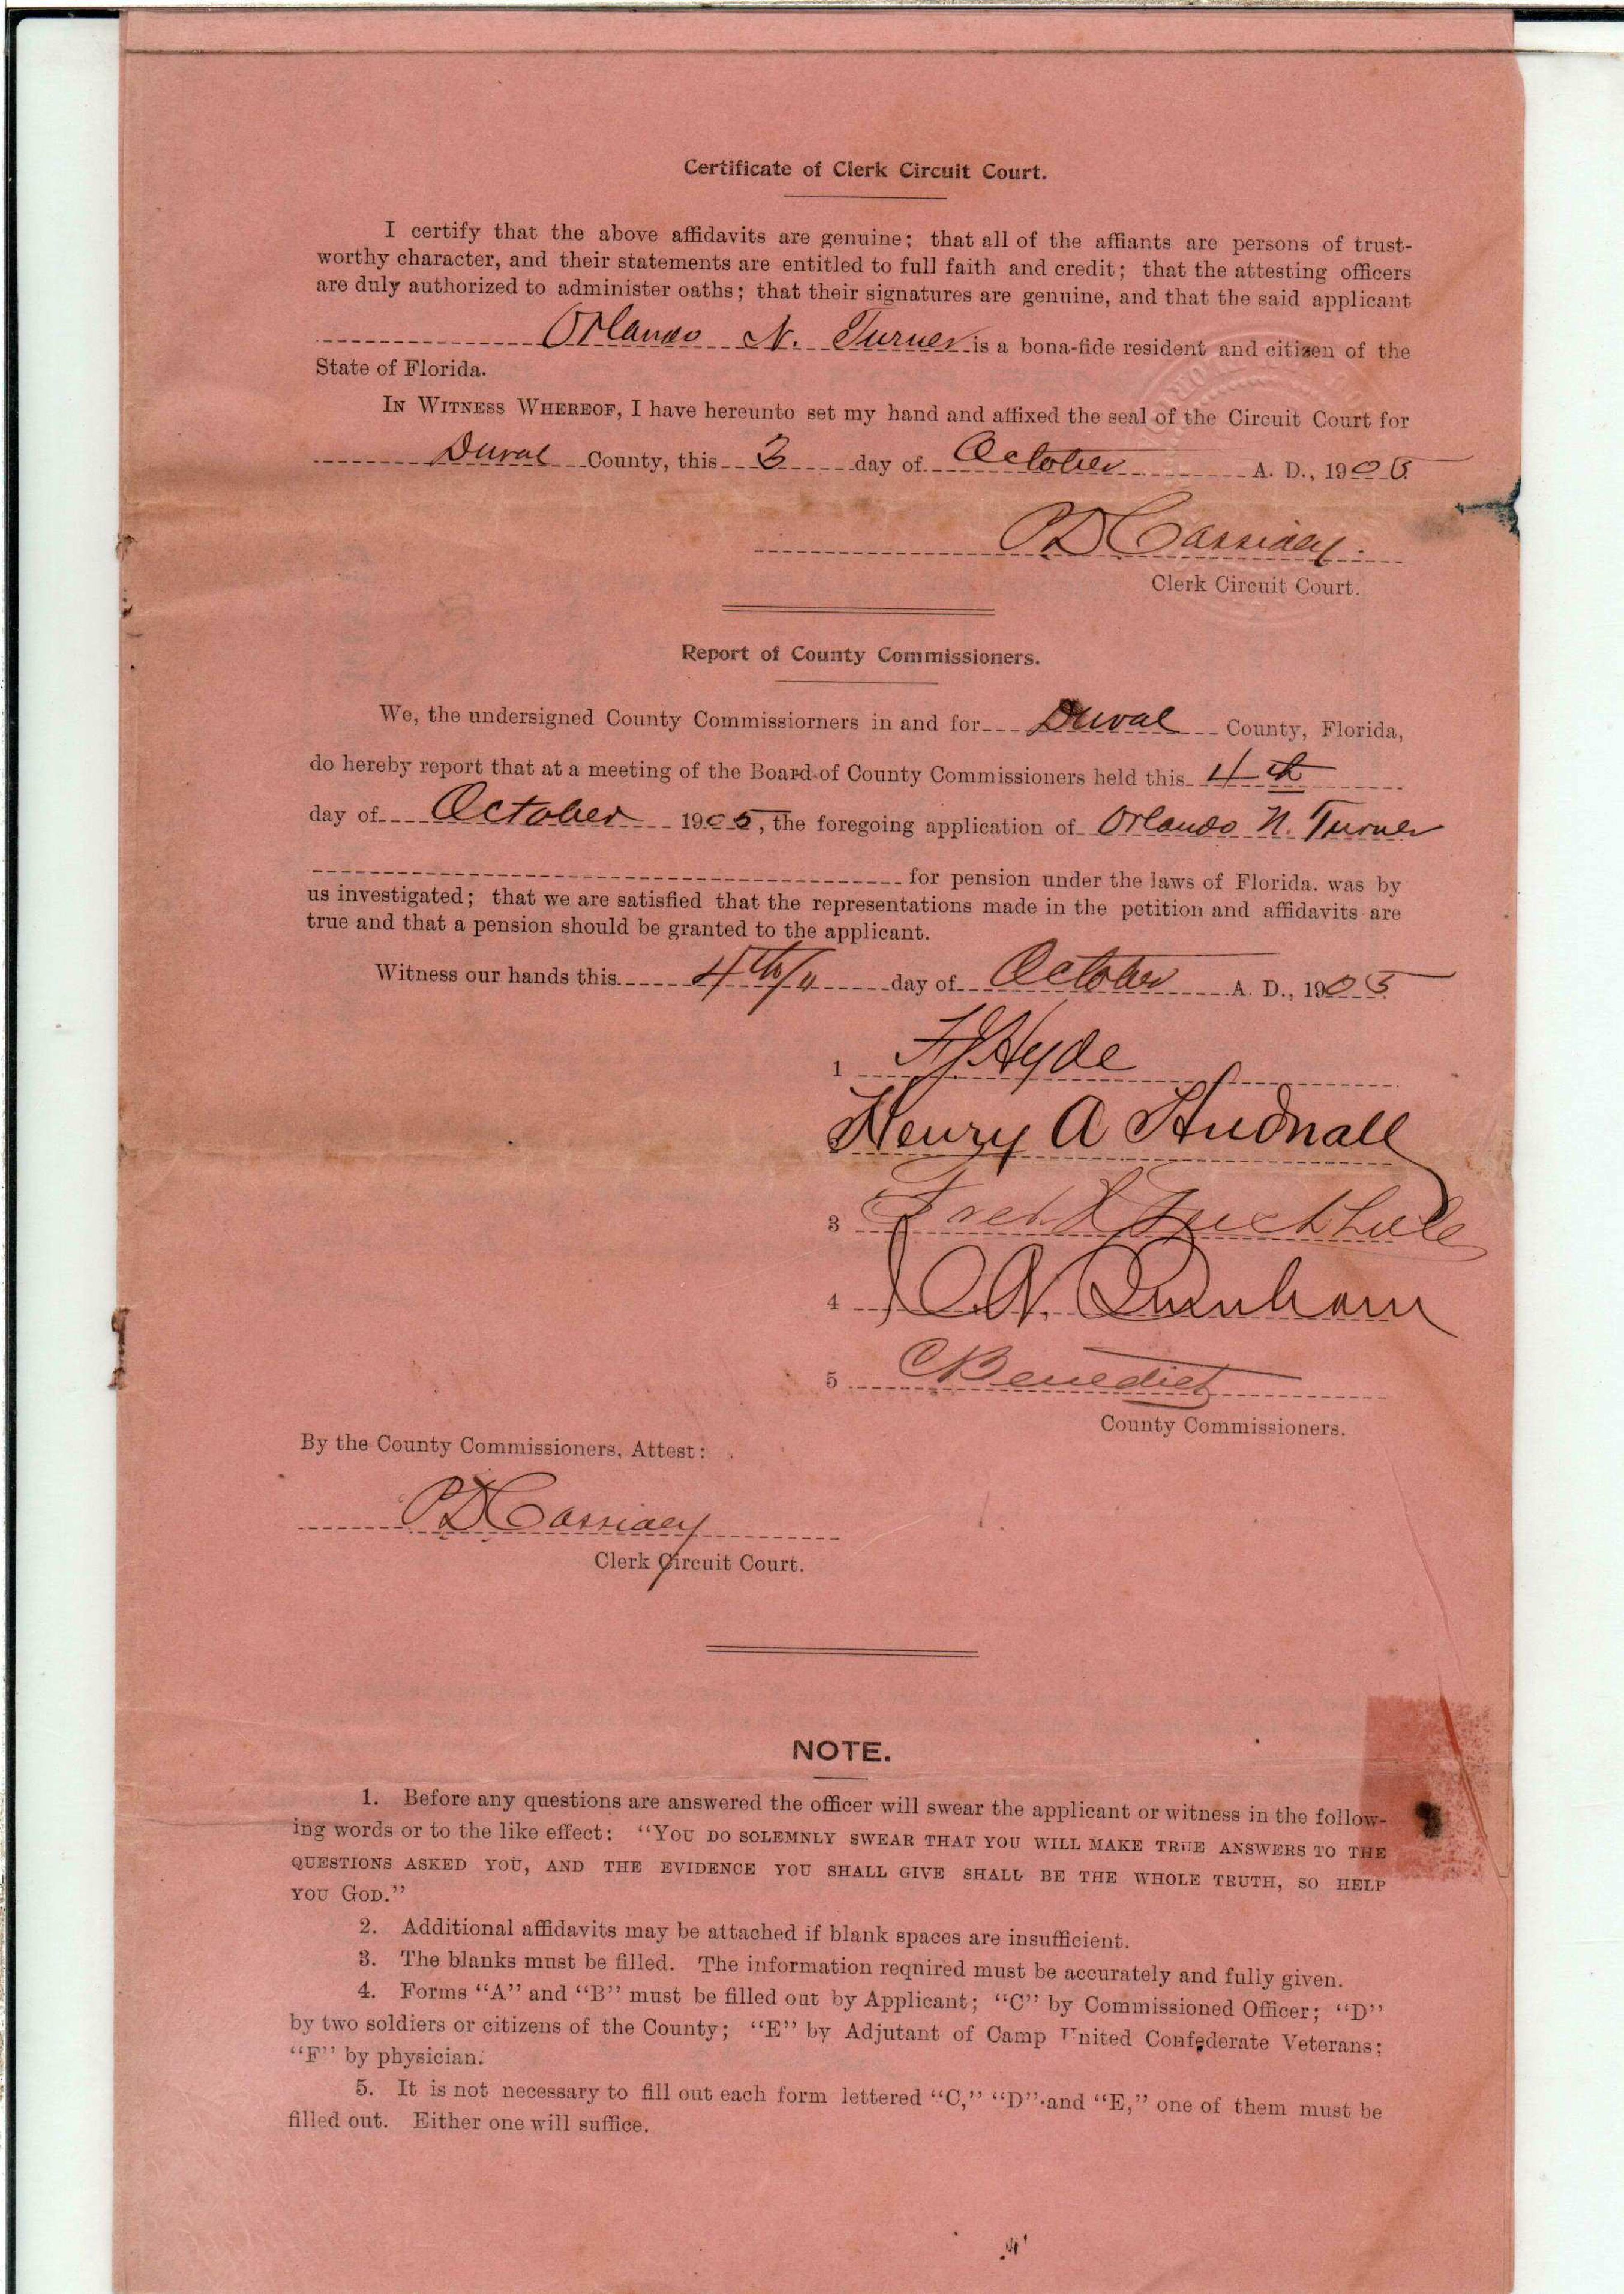 Certificate of Clerk Circuit Court.
I certify that the above affidavits are genuine; that all of the affiants are persons of trust-
worthy character, and their statements are entitled to full faith and credit; that the attesting officers
are duly authorized to administer oaths; that their signatures are genuine, and that the said applicant
Orlando N. Turner is a bona-fide resident and citizen of the
State of Florida.
IN WITNESS WHEREOF, I have hereunto set my hand and affixed the seal of the Circuit Court for
Duval County, this 3 day of October A. D., 1905
P D Cassidey
Clerk Circuit Court.
Report of County Commissioners.
We, the undersigned County Commissiorners in and for Duval County, Florida,
do hereby report that at a meeting of the Board of County Commissioners held this 4th
day of October 1905, the foregoing application of Orlando N. Turner
for pension under the laws of Florida. was by
us investigated; that we are satisfied that the representations made in the petition and affidavits are
true and that a pension should be granted to the applicant.
Witness our hands this 4th day of October A. D., 1905
1 F J Hyde
Henry A Hudnall
3
4
5 C Benedict
County Commissioners.
By the County Commissioners, Attest:
P D Cassidey
Clerk Circuit Court.
NOTE.
1. Before any questions are answered the officer will swear the applicant or witness in the follow-
ing words or to the like effect: "YOU DO SOLEMNLY SWEAR THAT YOU WILL MAKE TRUE ANSWERS TO THE
QUESTIONS ASKED YOU, AND THE EVIDENCE YOU SHALL GIVE SHALL BE THE WHOLE TRUTH, SO HELP
YOU GOD."
2. Additional affidavits may be attached if blank spaces are insufficient.
3. The blanks must be filled. The information required must be accurately and fully given.
4. Forms "A" and "B" must be filled out by Applicant; "C" by Commissioned Officer; "D"
by two soldiers or citizens of the County; "E" by Adjutant of Camp United Confederate Veterans;
"F" by physician.
5. It is not necessary to fill out each form lettered "C," "D" and "E," one of them must be
filled out. Either one will suffice.